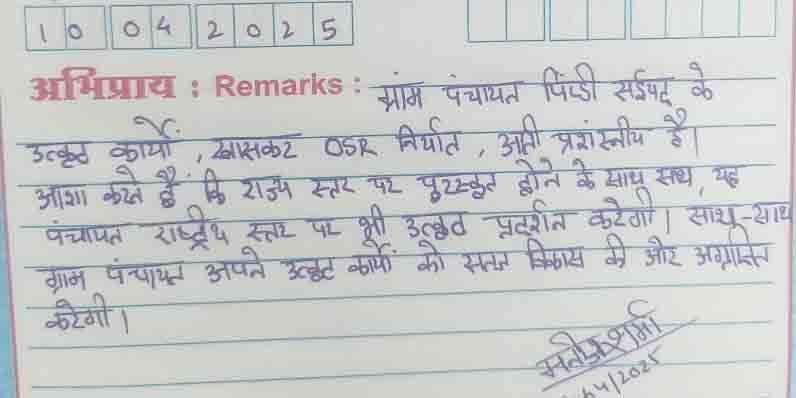 10 04 2025
अभिप्राय : Remarks : ग्रांम पंचायत पिंण्डी सईयद के
उत्कृठ कार्यों , खासकट OSR निर्यात , अती प्रशंस्नीय है।
आशा करते हैं कि राज्य स्तर पर पुरस्कृत होने के साथ सथ, यह
पंचायत राष्ट्रीय स्तर पर भी उत्कृठ प्रदर्शन करेगी। साथ-साथ
ग्राम पंचायत अपने उत्कृठ कार्यों को सतत विकास की ओर अग्रसित
करेगी।
शर्मा
04/2025